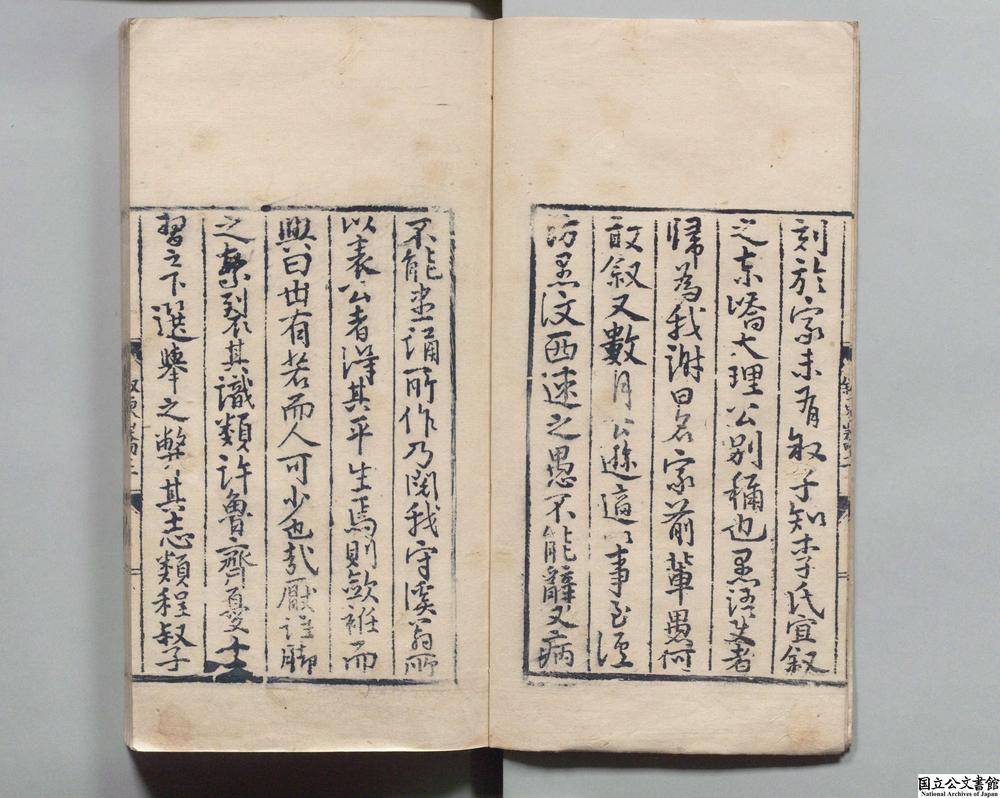 刻於家未有叙子知李氏宜叙
之東嶠大理公別稱也愚語史者
歸為我謝曰名家前輩愚何
敢叙又數月公遜適以事至涇
訪愚汶西速之愚不能辭又病
不能盡誦所作乃閱我守溪翁所
以表公者詳其平生焉則斂衽而
興曰世有若而人可少也哉厭註脚
之棼裂其識類許魯齋憂士
習之下選舉之弊其志類程叔子
国立公文書館
National Archives of Japan